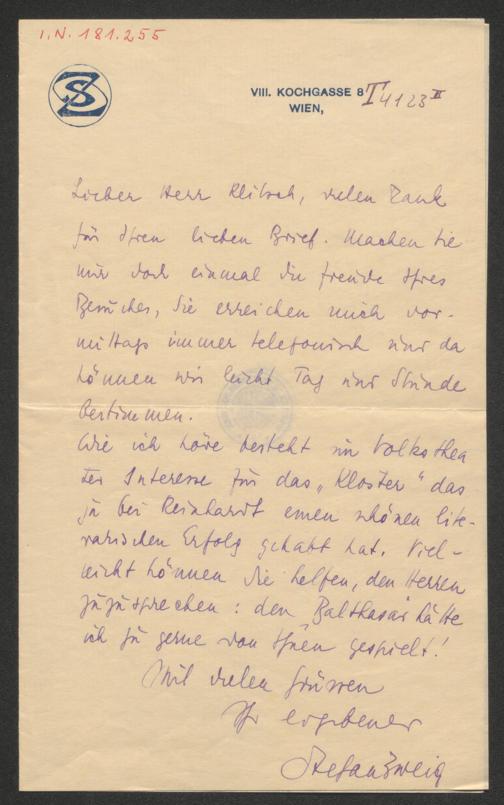 I.N. 181.255
SZ
VIII. KOCHGASSE 8 T 4123 II
WIEN,
Lieber Herr Klitsch, vielen Dank
für Ihren lieben Brief. Machen Sie
mir doch einmal die Freude Ihres
Besuches, Sie erreichen mich vor-
mittags immer telefonisch und da
können wir leicht Tag und Stunde
bestimmen.
Wie ich höre besteht im Volksthea
ter Interesse für das „Kloster" das
ja bei Reinhardt einen schönen lite-
rarischen Erfolg gehabt hat. Viel-
leicht können Sie helfen, den Herren
zuzusprechen: den „Balthasar" hätte
ich zu gerne von Ihnen gespielt!
Mit vielen Grüssen
Ihr ergebener
Stefan Zweig